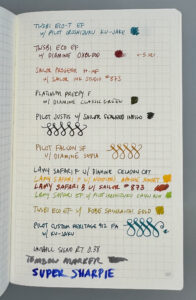 TWSBI ECO-T EF
W/ PILOT IROSHIZUKU KU-JAKU
TWSBI ECO EF
W/ DIAMINE OXBLOOD
SAILOR PROGEAR H-MF
W/ SAILOR INK STUDIO #873
PLATINUM PREPPY F
W/ DIAMINE CLASSIC GREEN
PILOT JUSTUS W/ SAILOR INDIGO
PILOT FALCON SF
W/ DIAMINE SEPIA
LAMY SAFARI F W/ DIAMINE CELADON CAT
LAMY SAFARI F W/
LAMY SAFARI B W/ SAILOR #873
LAMY SAFARI EF W/
TWSBI ECO EF W/ KOBE GOLD
PILOT CUSTOM HERITAGE 912 FA
W/ KU-JAKU
UNIBALL SIGNO RT 0.38
TOMBOW MARKER
SUPER SHARPIE